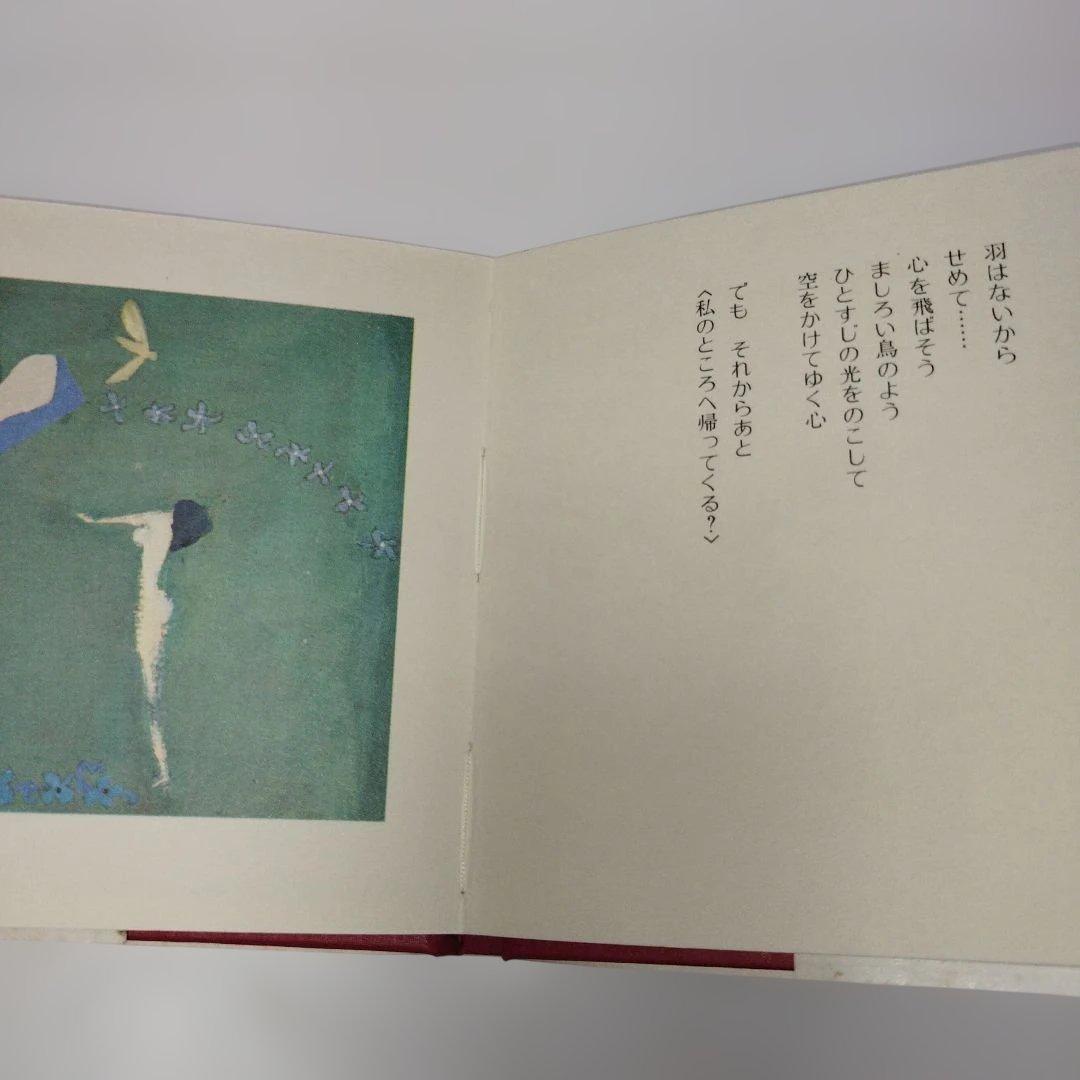 羽はないから
せめて……
心を飛ばそう
ましろい鳥のよう
ひとすじの光をのこして
空をかけてゆく心
でも それからあと
〈私のところへ帰ってくる?〉